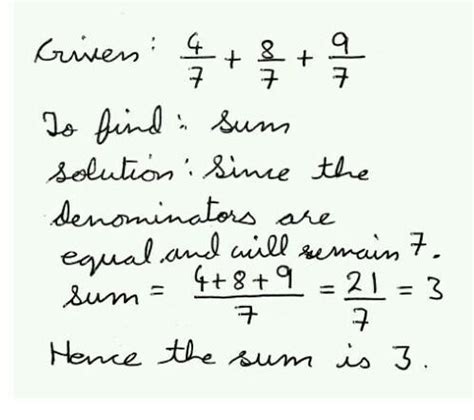 Given: 4/7 + 8/7 + 9/7
To find: sum
solution: Since the
denominators are
equal and will remain 7.
sum = 4+8+9/7 = 21/7 = 3
Hence the sum is 3.